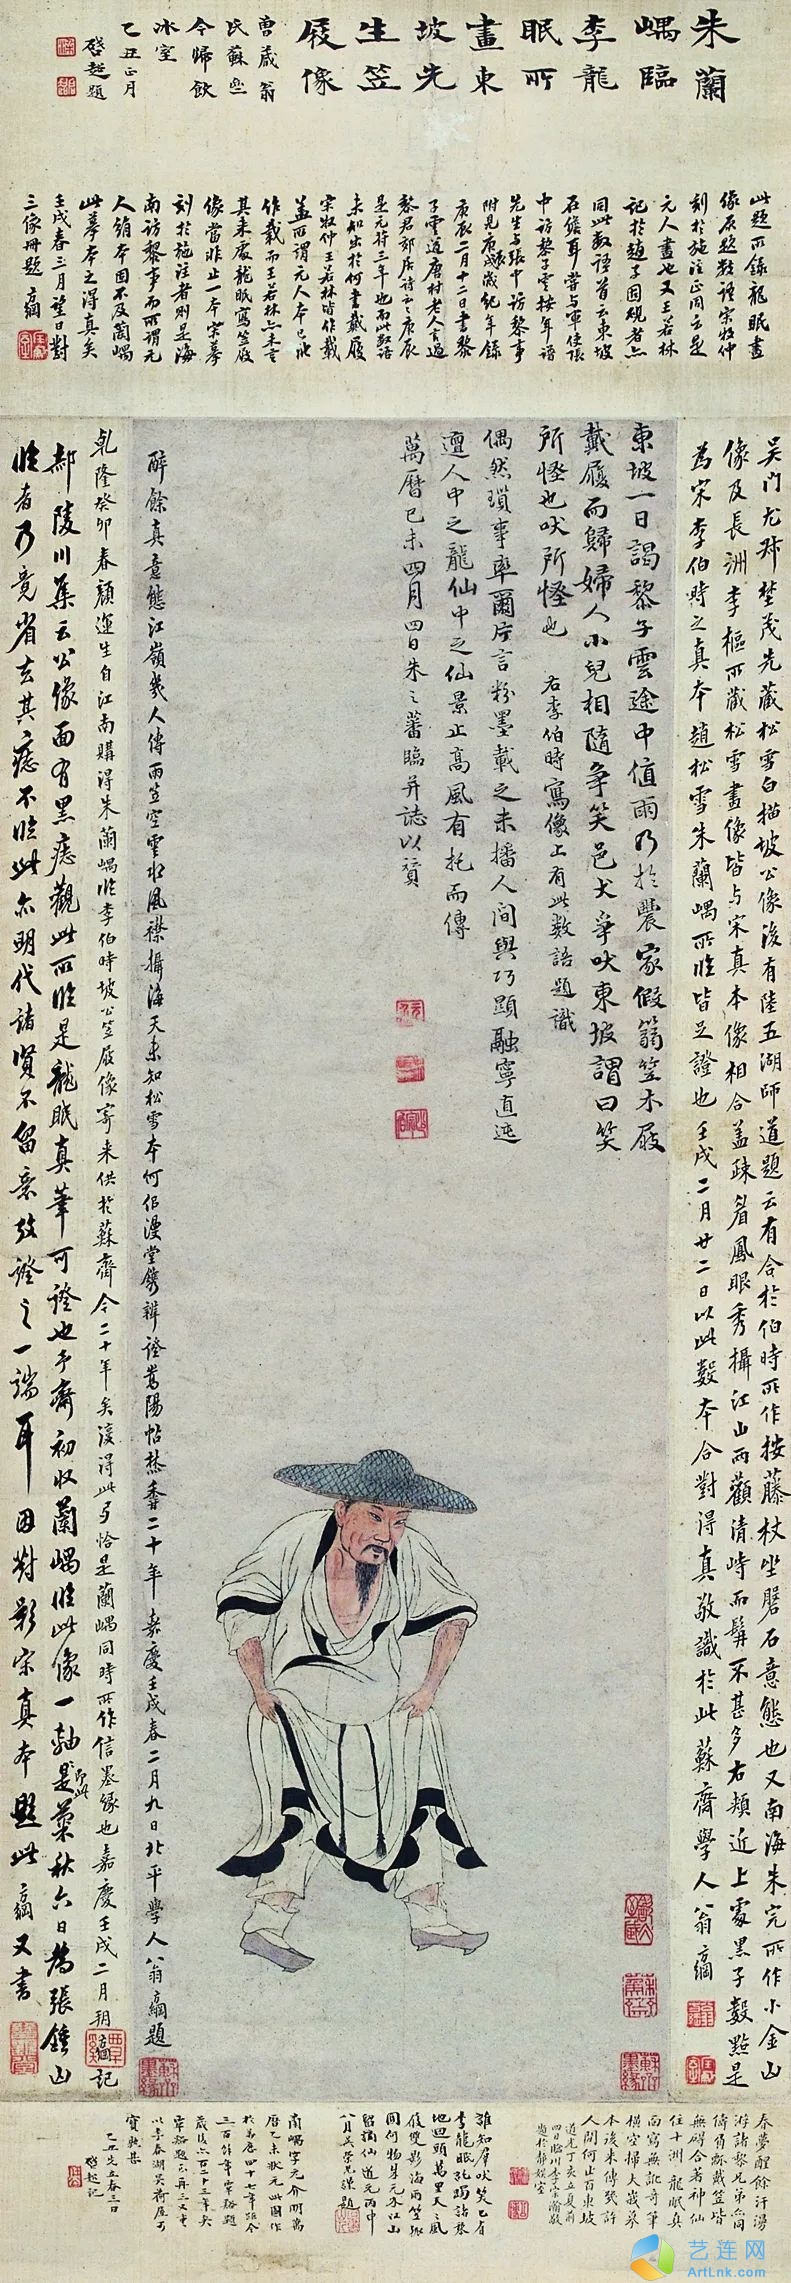 朱蘭
嵎臨
李龍
眠所
畫東
坡先
生笠
屐像
曽藏翁
氏蘇齋
今歸飲
冰室
乙丑正月
啓超題
此題所錄龍眠畫
像原題數語宋牧仲
刻於施注正同云是
元人畫也又王若林
記於趙子固硯者亦
同此數語首云東坡
在儋耳嘗與軍使張
中訪黎子雲按年譜
先生與張中訪黎事
附見庚辰歲紀年錄
庚辰二月十二日書黎
子雲道唐村老人言過
黎君郊居詩云庚辰
是元符三年也而此數語
未知出於何書戴屐
宋牧仲王若林皆作載
蓋所謂元人本已
作載而王若林亦未言
其來處龍眠寫笠屐
像當非止一本宋摹
刻於施注者則是海
南訪黎事而所謂元
人絹本固不及蘭嵎
此摹本之得真矣
壬戌春三月望日對
三像冊題 方綱
吳門尤叔埜茂先藏松雪白描坡公像後有陸五湖師道題云有合於伯時所作按藤杖坐磐石意態也又南海朱完所作小金山
像及長洲李樞所藏松雪畫像皆與宋真本像相合蓋疎眉鳳眼秀攝江山兩顴清峙而髯不甚多右頰近上處黑子數點是
為宋李伯時之真本趙松雪朱蘭嵎所臨皆足證也壬戌二月廿二日以此數本合對得真敬識於此蘇齋學人翁方綱
東坡一日謁黎子雲途中值雨乃於農家假箬笠木屐
戴履而歸婦人小兒相隨爭笑邑犬爭吠東坡謂曰笑
所怪也吠所怪也 右李伯時寫像上有此數語題識
偶然瑣事率爾片言粉墨載之未播人間與巧顯融寧直迍
邅人中之龍仙中之仙景止高風有托而傳
萬曆己未四月四日朱之蕃臨并誌以贊
醉餘真意態江嶺幾人傳雨笠空雲水風襟攝海天未知松雪本何似漫堂鐫辨證嵩陽帖焚香二十年 嘉慶壬戌春二月九日北平學人翁方綱題
乾隆癸卯春顏運生自江南購得朱蘭嵎臨李伯時坡公笠屐像寄來供於蘇齋今二十年矣復得此身恰是蘭嵎同時所作信墨緣也嘉慶壬戌二月朔方綱記
郝陵川集云公像面有黑痣觀此所臨是龍眠真筆可證也予齋初收蘭嵎臨此像一軸是即此葉秋六日為張鍾山
臨者乃竟省去其痣不臨此亦明代諸賢不留意攷證之一端耳因對影宋真本題此 方綱又書
春夢醒餘汗漫
游諸黎兄弟亦同
儔負瓢戴笠皆
無碍合著神仙
住十洲 龍眠真
南寫無訛奇筆
橫空掃大戟摹
本後來傳幾許
人間何止百東坡
道光丁亥立夏前
四日臨川李宗瀚敬
題於靜娛室
誰知犀吠笑已有
李龍眠孔蹋諸黎
地回頭萬里天天風
履雙影海雨笠孤
圓何物生元氣江山
貽謫仙 道元丙申
八月吳榮光謹題
蘭嵎字元介明萬
曆乙未狀元此圖作
於萬曆四十七年距今
三百餘年覃谿題
歲後六百二十三年矣
覃谿題不再三又重
以李春湖吳荷屋可
寶孰甚
乙丑先立春三日
啓超記
艺连网
ArtLnk.com